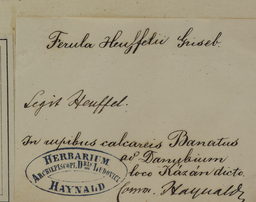 Ferula Heuffelii Griseb.
Legit Heuffel.
In rupibus calcareis Banatus
ad Danubium
loco Kázán dicto.
HERBARIUM
ARCHIEPISCOPI DRIS LUDOVICI
HAYNALD
Comm. Haynald